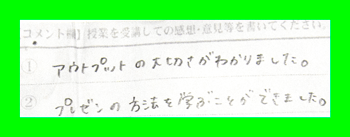 コメント欄 授業を受講しての感想・意見等を書いてください
① アウトプットの大切さがわかりました。
② プレゼンの方法を学ぶことができました。